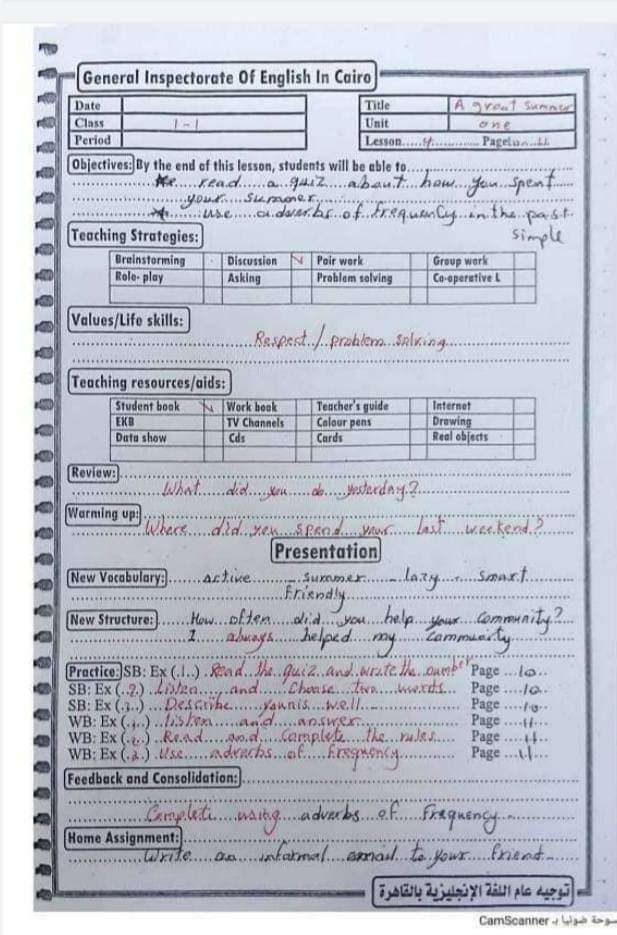 General Inspectorate Of English In Cairo
Date
Class 1-1
Period
Title A great summer
Unit one
Lesson 4 Page
Objectives: By the end of this lesson, students will be able to
read a quiz about how you spent
your summer
use adverbs of frequency in the past
simple
Teaching Strategies:
Brainstorming Discussion Pair work Group work
Role- play Asking Problem solving Co-operative L
Values/Life skills:
Respect / problem solving
Teaching resources/aids:
Student book Work book Teacher's guide Internet
EKB TV Channels Colour pens Drawing
Data show Cds Cards Real objects
Review:
What did you do yesterday?
Warming up:
Where did you spend your last weekend?
Presentation
New Vocabulary: active summer lazy smart
friendly
New Structure: How often did you help your community?
I always helped my community
Practice: SB: Ex (1) Read the quiz and write the number Page 10
SB: Ex (2) Listen and choose two words Page 10
SB: Ex (3) Describe younis well Page 10
WB: Ex (1) listen and answer Page 11
WB: Ex (2) Read and Complete the rules Page 11
WB: Ex (3) Use adverbs of Frequency Page 11
Feedback and Consolidation:
Complete using adverbs of Frequency
Home Assignment:
Write an informal email to your friend
توجيه عام اللغة الإنجليزية بالقاهرة
CamScanner ممسوحة ضوئيا بـ